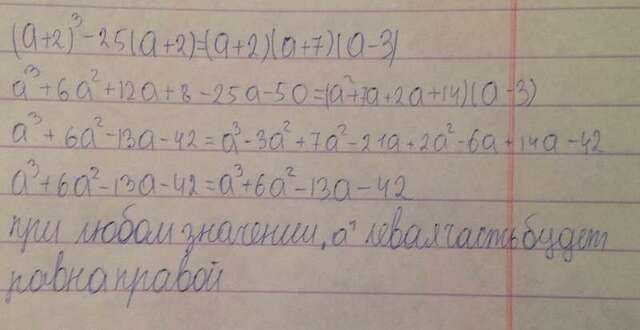 (a+2)³-25(a+2)=(a+2)(a+7)(a-3)
a³+6a²+12a+8-25a-50=(a²+7a+2a+14)(a-3)
a³+6a²-13a-42=a³-3a²+7a²-21a+2a²-6a+14a-42
a³+6a²-13a-42=a³+6a²-13a-42
при любом значении "а" левая часть будет
равна правой